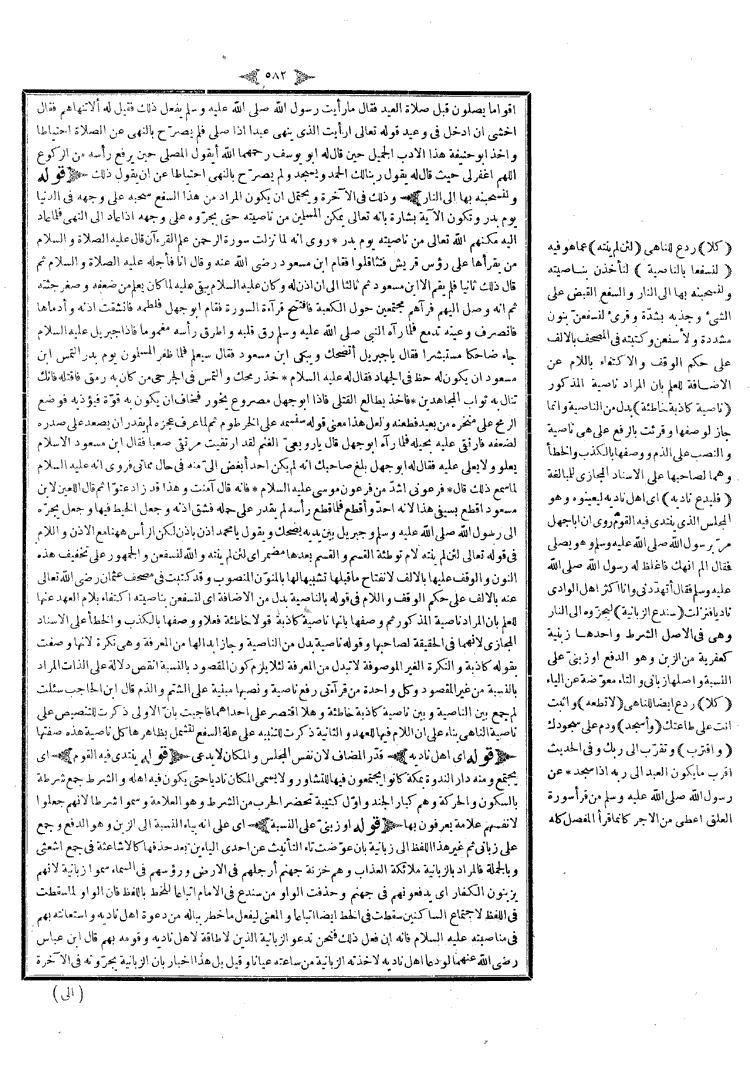 ٥٨٢
اقواما يصلون قبل صلاة العيد فقال مارأيت رسول الله صلى الله عليه وسلم يفعل ذلك فقيل له ألاتنهاهم فقال
اخشى ان ادخل فى وعيد قوله تعالى ارأيت الذى ينهى عبدا اذا صلى فلم يصرح بالنهى عن الصلاة احتياطا
واخذ ابو حنيفة هذا الادب الجميل حين قال له ابو يوسف رحمهما الله أيقول المصلى حين يرفع رأسه من الركوع
اللهم اغفرلى حيث قال له يقول ربنالك الحمد ويسجد ولم يصرح بالنهى احتياطا عن ان يقول ذلك ﴿قوله
ولنسحبنه بها الى النار﴾ وذلك فى الآخرة ويحتمل ان يكون المراد من هذا السفع سحبه على وجهه فى الدنيا
يوم بدر وتكون الآية بشارة بانه تعالى يمكن المسلمين من ناصيته حتى يجروه على وجهه اذا عاد الى النهى فلما عاد
اليه مكنهم الله تعالى من ناصيته يوم بدر * روى انه لما نزلت سورة الرحمن علم القرءآن قال عليه الصلاة والسلام
من يقرأها على رؤس قريش فتثاقلوا فقام ابن مسعود رضى الله عنه وقال انا فأجلسه عليه الصلاة والسلام ثم
قال ذلك ثانيا فلم يقم الا ابن مسعود ثم ثالثا الى ان اذن له وكان عليه السلام يبقى عليه لما كان يعلم من ضعفه وصغر جثته
ثم انه وصل اليهم فرآهم مجتمعين حول الكعبة فافتتح قراءة السورة فقام ابو جهل فلطمه فانشقت اذنه وأدماها
فانصرف وعينه تدمع فلما رآه النبى صلى الله عليه وسلم رق قلبه واطرق رأسه مغموما فاذا جبريل عليه السلام
جاء ضاحكا مستبشرا فقال يا جبريل أتضحك ويبكى ابن مسعود فقال سيعلم فلما ظفر المسلمون يوم بدر التمس ابن
مسعود ان يكون له حظ فى الجهاد فقال له عليه السلام * خذ رمحك والتمس فى الجرحى من كان به رمق فاقتله فانك
تنال به ثواب المجاهدين * فاخذ يطالع القتلى فاذا ابو جهل مصروع يخور فخاف ان يكون به قوة فيؤذيه فوضع
الرمح على منخره من بعيد فطعنه ولعل هذا معنى قوله سنسمه على الخرطوم ثم لما عرف عجزه لم يقدر ان يصعد على صدره
لضعفه فارتقى عليه بحيلة فلما رآه ابو جهل قال يارويعى الغنم لقد ارتقيت مرتقى صعبا فقال ابن مسعود الاسلام
يعلو ولا يعلى عليه فقال له ابو جهل بلغ صاحبك انه لم يكن احد أبغض الى منه فى حال مماتى فروى انه عليه السلام
لما سمع ذلك قال * فرعونى اشد من فرعون موسى عليه السلام * فانه قال آمنت وهذا قد زاد عتوا ثم قال اللعين لابن
مسعود اقطع بسيفى هذا لانه احد وأقطع فلما قطع رأسه لم يقدر على حمله فشق اذنه وجعل الخيط فيها وجعل يجره
الى رسول الله صلى الله عليه وسلم وجبريل بين يديه يضحك ويقول يا محمد اذن باذن لكن الرأس ههنا مع الاذن واللام
فى قوله تعالى لئن لم ينته لام توطئة القسم والقسم بعدها مضمر اى لئن لم ينته والله لنسفعن والجمهور على تخفيف هذه
النون والوقف عليها بالالف لانفتاح ماقبلها تشبيها لها بالمنون المنصوب وقد كتبت فى مصحف عثمان رضى الله تعالى
عنه بالالف على حكم الوقف واللام فى قوله بالناصية بدل من الاضافة اى لنسفعن بناصيته اكتفاء بلام العهد عنها
للعلم بان المراد ناصية المذكور ثم وصفها بانها ناصية كاذبة قولا خاطئة فعلا ووصفها بالكذب والخطأ على الاسناد
المجازى لانهما فى الحقيقة لصاحبها وقوله ناصية بدل من الناصية وجاز ابدالها من المعرفة وهى نكرة لانها وصفت
بقوله كاذبة والنكرة الغير الموصوفة لاتبدل من المعرفة لئلا يلزم كون المقصود بالنسبة انقص دلالة على الذات المراد
بالنسبة من غير المقصود وكل واحدة من قراءتى رفع ناصية ونصبها مبنية على الشتم والذم قال ابن الحاجب سئلت
لم جمع بين الناصية وبين ناصية كاذبة خاطئة وهلا اقتصر على احداهما فاجبت بان الاولى ذكرت للتنصيص على
ناصية الناهى بناء على ان اللام فيها للعهد والثانية ذكرت للتنبيه على علة السفع لتشمل بظاهرها كل ناصية هذه صفتها
﴿قوله اى اهل ناديه﴾ قدر المضاف لان نفس المجلس والمكان لايدعى ﴿قوله ينتدى فيه القوم﴾ اى
يجتمع ومنه دار الندوة بمكة كانوا يجتمعون فيها للتشاور ولا يسمى المكان ناديا حتى يكون فيه اهله والشرط جمع شرطة
بالسكون والحركة وهم كبار الجند واول كتيبة تحضر الحرب من الشرط وهو العلامة وسموا شرطا لانهم جعلوا
لانفسهم علامة يعرفون بها ﴿قوله او زبنى على النسبة﴾ اى على انه بياء النسبة الى الزبن وهو الدفع وجمع
على زبانى ثم غير هذا اللفظ الى زبانية بان عوضت تاء التأنيث عن احدى الياءين بعد حذفها كالاشاعثة فى جمع اشعثى
وبالجملة فالمراد بالزبانية ملائكة العذاب وهم خزنة جهنم أرجلهم فى الارض ورؤسهم فى السماء سموا زبانية لانهم
يزبنون الكفار اى يدفعونهم فى جهنم وحذفت الواو من سندع فى الامام اتباعا للخط باللفظ فان الواو لما سقطت
فى اللفظ لاجتماع الساكنين سقطت فى الخط ايضا اتباعا والمعنى ليفعل ماخطر بباله من دعوة اهل ناديه واستعانته بهم
فى مناصبته عليه السلام فانه ان فعل ذلك فنحن ندعو الزبانية الذين لاطاقة لاهل ناديه وقومه بهم قال ابن عباس
رضى الله عنهما لو دعا اهل ناديه لاخذته الزبانية من ساعته عيانا وقيل بل هذا اخبار بان الزبانية يجرونه فى الآخرة
(الى)
(كلا) ردع للناهى (لئن لم ينته) عما هو فيه
(لنسفعا بالناصية) لنأخذن بناصيته
ولنسحبنه بها الى النار والسفع القبض على
الشئ وجذبه بشدة وقرئ لنسفعن بنون
مشددة ولأسفعن وكتبته فى المصحف بالالف
على حكم الوقف والاكتفاء باللام عن
الاضافة للعلم بان المراد ناصية المذكور
(ناصية كاذبة خاطئة) بدل من الناصية وانما
جاز لوصفها وقرئت بالرفع على هى ناصية
والنصب على الذم ووصفها بالكذب والخطأ
وهما لصاحبها على الاسناد المجازى للمبالغة
(فليدع ناديه) اى اهل ناديه ليعينوه وهو
المجلس الذى ينتدى فيه القوم روى ان اباجهل
مر برسول الله صلى الله عليه وسلم وهو يصلى
فقال الم انهك فاغلظ له رسول الله صلى الله
عليه وسلم فقال أتهددنى وانا اكثر اهل الوادى
ناديا فنزلت (سندع الزبانية) ليجروه الى النار
وهى فى الاصل الشرط واحدها زبنية
كعفرية من الزبن وهو الدفع او زبنى على
النسبة واصلها زبانى والتاء معوضة عن الياء
(كلا) ردع ايضا للناهى (لاتطعه) واثبت
انت على طاعتك (واسجد) ودم على سجودك
(واقترب) وتقرب الى ربك وفى الحديث
اقرب مايكون العبد الى ربه اذا سجد * عن
رسول الله صلى الله عليه وسلم من قرأ سورة
العلق اعطى من الاجر كانما قرأ المفصل كله